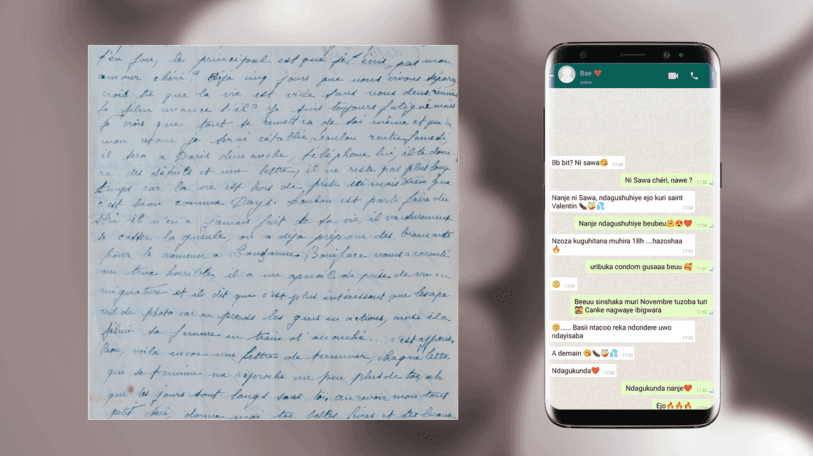 t'en fou, le principal est que je t'écris, pas mon
amour chéri? Déjà cinq jours que nous vivons séparé
crois tu que la vie est vide sans nous deux
Le film avance t'il? Je suis toujours fatigué mais
je crois que tout se remettra de soi même et qu'à
mon retour je serai rétablie. Loulou rentre Samedi
il sera à Paris dimanche, téléphone lui, il te donne
ra des détails et une lettre, il ne reste pas plus long
temps car la vie est hors de prix
c'est beau comme Pays. Loulou est parti faire du
ski il n'en a jamais fait de sa vie, il va surement
se casser la gueule, on a déjà préparé des brancards
pour le ramener à Lausanne. Boniface nous a raconté
un truc horrible, il a un appareil de prise de vue en
miniature et il dit que c'est plus intéressant que les appa
reils de photo car on prends les gens en actions, ainsi il a
filmé sa femme en train d'accouché..... c'est affreux,
voilà encore une lettre de terminer, chaque lettre
que je termine me rapproche un peu plus de toi, ah
que les jours sont longs sans toi, au revoir mon tout
petit chéri, donne moi tes belles lèvres et tes beaux
Bae ❤️
online
Bb bit? Ni sawa😘 17:49
Ni Sawa chéri, nawe ? 17:50
Nanje ni Sawa, ndagushuhiye ejo kuri saint
Valentin 🍆🍑💦 17:50
Nanje ndagushuhiye beubeu🤗😍❤️ 17:50
Nzoza kuguhitana muhira 18h ....hazoshaa
🔥 17:51
uribuka condom gusaaa beuu 🥰 17:51
😳 17:51
Beeuu sinshaka muri Novembre tuzoba turi
👨‍👩‍👧 Canke nagwaye ibigwara 17:52
😕...... Basii ntacoo reka ndondere uwo
ndayisaba 17:53
A demain 😘🍆🍑💦 17:53
Ndagukunda❤️ 17:53
Ndagukunda nanje❤️ 17:53
Ejo🔥🔥🔥